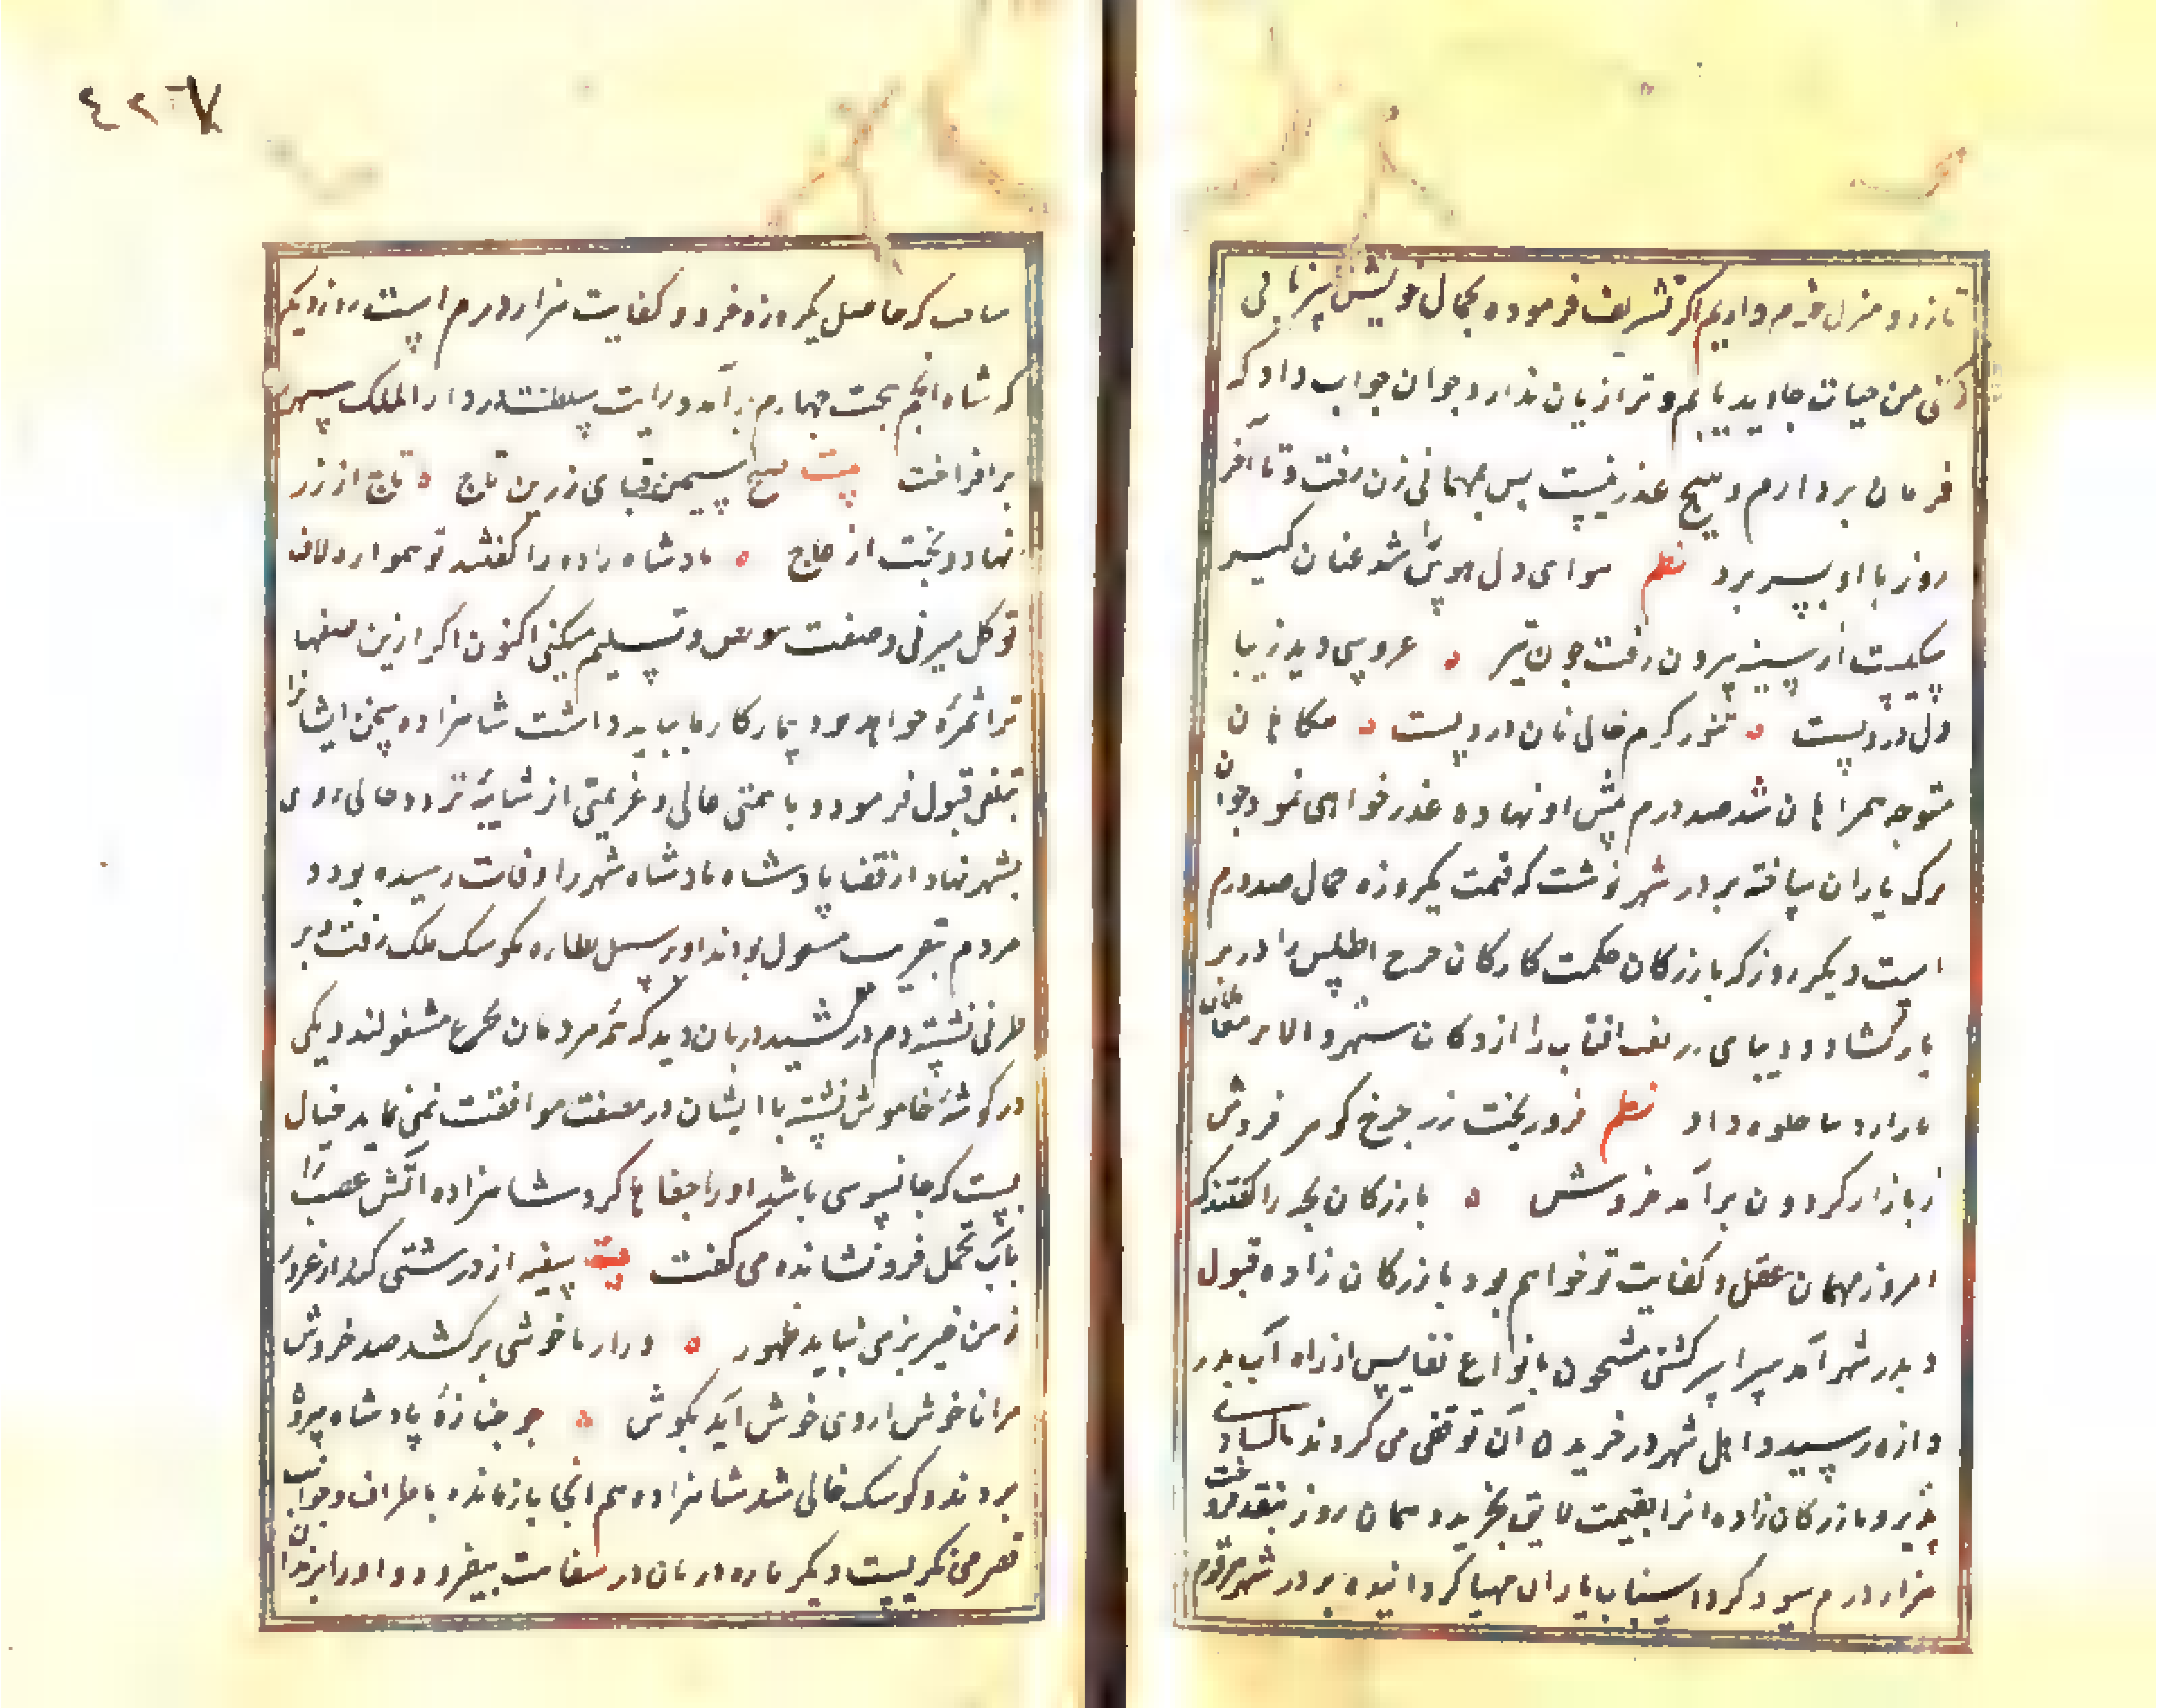 تازه و منزل خرم داریم اگر تشریف فرموده بجمال خویش میزبانی
کنی من حیات جاوید یابم و ترا زیان ندارد جوان جواب داد که
فرمان بردارم و هیچ عذر نیست پس بمهمانی زن رفت و تا آخر
روز با او بسر برد نظم هوای دل هوس را شد عنان گیر
شکیبت از سینه بیرون رفت چون تیر ه عروسی دید زیبا
دل درو بست ه تنور گرم حالی نان درو بست ه
متوجه همراهان شد صد درم پیش او نهاده عذرخواهی نمود جوان
برک یاران ساخته بر در شهر نوشت که قیمت یکروزه جمال صد درم
است دیگر روز که بازرگان حکمت کار دکان چرخ اطلس را در بر
بازگشاد و دیبای زربفت افتاب را از دکان سپهر والا بر
بازار جلوه داد نظم فرو ریخت زر چرخ گوهر فروش
ز بازار گردون برآمد خروش ه بازرگان بچه را گفتند که
امروز مهمان عقل و کفایت تو خواهیم بود بازرگان زاده قبول
و بدر شهر آمد سراسر کشتی مشحون بانواع نفایس از راه آب بدر
وازه رسید و اهل شهر در خریدن آن توقفی می کردند تا کسادی
پذیرد بازرگان زاده انرا بقیمت لایق بخرید و همان روز بنقد فروخت
هزار درم سود کرد اسباب یاران مهیا گردانیده بر در شهر مرقوم
ساخت که حاصل یکروزه خرد و کفایت هزار درم است روز دیگر
که شاه انجم بتخت چهارم برآمد و رایت سلطنت در دار الملک سپهر
برافراخت بیت صبح سیمین قبای زرین تاج ه تاج از زر
نهاد و تخت از عاج ه پادشاه زاده را گفتند تو همواره لاف
توکل میزنی و صفت تفویض و تسلیم میکنی اکنون اگر ازین صفتها
ترا ثمره خواهد بود تیمار کار ما بباید داشت شاهزاده سخن ایشانرا
بتلقی قبول فرمود و با همتی عالی و عزیمتی از شایبه تردد خالی روی
بشهر نهاد از قضا پادشاه پادشاه شهر را وفات رسیده بود و
مردم بتعزیت مشغول بودند او بر سبیل نظاره بکوشک ملک رفت و بر
طرفی نشسته دم درکشید دربان دید که همه مردمان بجزع مشغولند و یکی
در گوشه خاموش نشسته با ایشان در مصیبت موافقت نمی نماید خیال
بست که جاسوسی باشد او را جفاها کرد شاهزاده آتش غضب را
بآب تحمل فرو نشانده می گفت بیت سفیه از درشتی کند از غرور
ز من خیر بزمی نیاید ظهور ه ور او ناخوشی برکشد صد خروش
مرا ناخوش از وی خوش آید بگوش ه چو جنازه پادشاه بیرون
بردند و کوشک خالی شد شاهزاده هم انجا بازمانده باطراف و جوانب
قصر می نگریست دیگر باره دربان در سفاهت بیفزود و او را بزندان